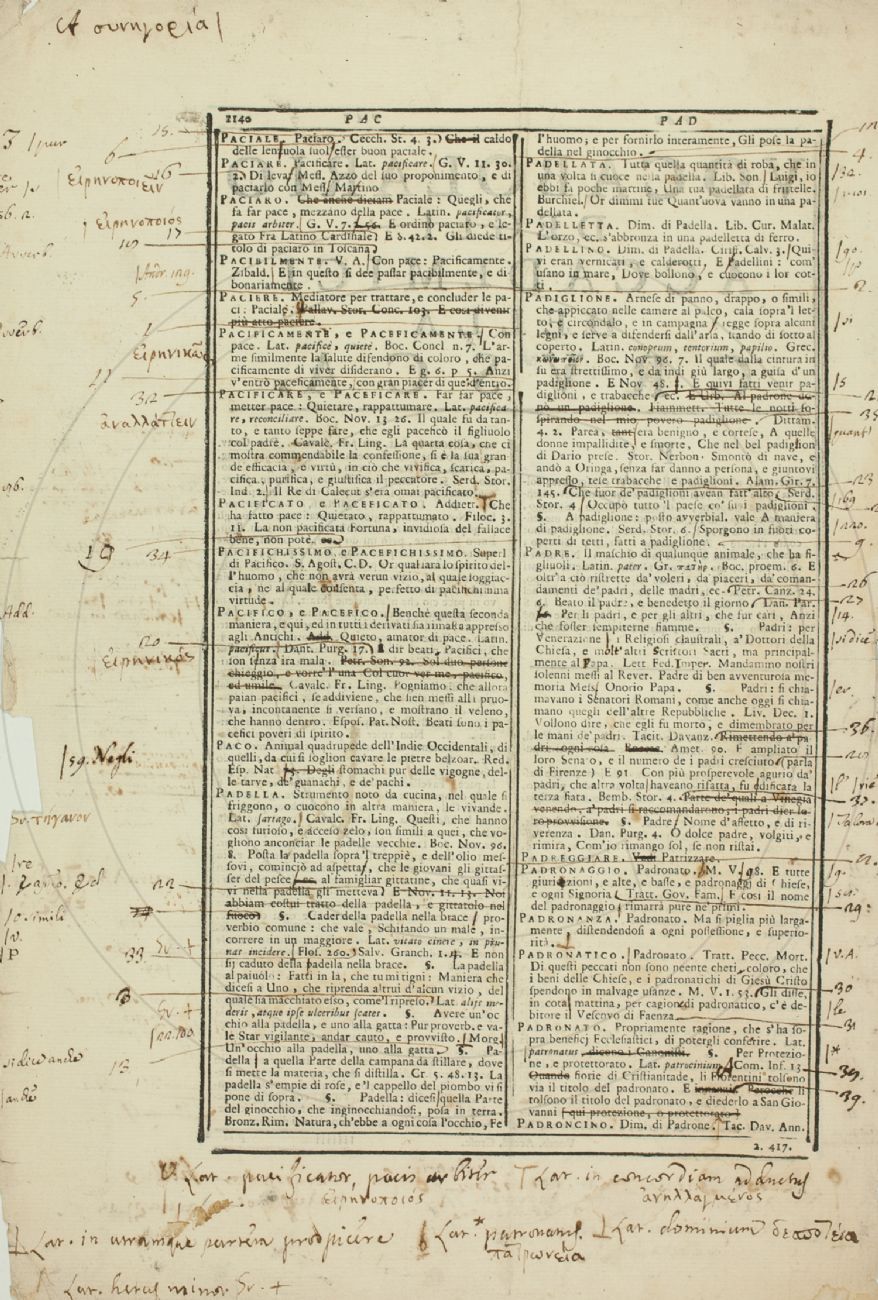 A συνηγορία
2140 PAC PAD
PACIALE. Paciaro. Cecch. St. 4. 3. Che il caldo
delle lenzuola suol esser buon paciale.
PACIARE. Pacificare. Lat. pacificare. G. V. 11. 30.
2. Di leva Mess. Azzo del suo proponimento, e di
paciarlo con Mess. Mastino
PACIARO. Che anche diciam Paciale: Quegli, che
fa far pace, mezzano della pace. Latin. pacificator,
pacis arbiter. G. V. 7. 56. E ordinò paciaro, e le-
gato Fra Latino Cardinale E 8. 42. 2. Gli diede ti-
tolo di paciaro in Toscana
PACIBILMENTE. V. A. Con pace: Pacificamente.
Zibald. E in questo si dee passar pacibilmente, e di-
bonariamente.
PACIERE. Mediatore per trattare, e concluder le pa-
ci: Paciale. Vallav. Stor. Conc. 103. E così divenir
più atto paciere.
PACIFICAMENTE, e PACEFICAMENTE. Con
pace. Lat. pacificè, quietè. Boc. Concl n. 7. L'ar-
me similmente la salute difendono di coloro, che pa-
cificamente di viver disiderano. E g. 6. p 5. Anzi
v'entrò paceficamente, con gran piacer di que' d'entro.
PACIFICARE, e PACEFICARE. Far far pace,
metter pace: Quietare, rappattumare. Lat. pacifica
re, reconciliare. Boc. Nov. 13 26. Il quale fu da tan-
to, e tanto seppe fare, che egli paceficò il figliuolo
col padre. Cavalc. Fr. Ling. La quarta cosa, che ci
mostra commendabile la confessione, si è la sua gran-
de efficacia, e virtù, in ciò che vivifica, scarica, pa-
cifica, purifica, e giustifica il peccatore. Serd. Stor.
Ind. 2. Il Re di Calecut s'era omai pacificato.
PACIFICATO, e PACEFICATO. Addiett. Che
ha fatto pace: Quietato, rappattumato. Filoc. 3.
11. La non pacificata Fortuna, invidiosa del fallace
bene, non potè.
PACIFICHISSIMO, e PACEFICHISSIMO. Superl
di Pacifico. S. Agost. C. D. Or qual sarà lo spirito del-
l'huomo, che non avrà verun vizio, al quale soggiac-
cia, ne al quale consenta, perfetto di pacifichissima
virtude.
PACIFICO, e PACEFICO. Benchè questa seconda
maniera, e qui, ed in tutti i derivati sia rimasa appresso
agli Antichi. Add. Quieto, amator di pace. Latin.
pacificus. Dant. Purg. 17. A dir beati Pacifici, che
son senza ira mala. Petr. Son. 92. Sol due persone
chieggio, e vorre' l'una Col cuor ver me, pacifico,
ed umile. Cavalc. Fr. Ling. Pogniamo: che allora
paian pacifici, se addiviene, che sien messi alla pruo-
va, incontanente si versano, e mostrano il veleno,
che hanno dentro. Espos. Pat. Nost. Beati sono i pa-
cefici poveri di spirito.
PACO. Animal quadrupede dell'Indie Occidentali, di
quelli, da cui si soglion cavare le pietre belzoar. Red.
Esp. Nat 53. Degli stomachi pur delle vigogne, del-
le tarve, de' guanachi, e de' pachi.
PADELLA. Strumento noto da cucina, nel quale si
friggono, o cuocono in altra maniera, le vivande.
Lat. sartago. Cavalc. Fr. Ling. Questi, che hanno
così furioso, e acceso zelo, son simili a quei, che vo-
gliono anconciar le padelle vecchie. Boc. Nov. 96.
8. Posta la padella sopra 'l treppiè, e dell'olio mes-
sovi, cominciò ad aspettar, che le giovani gli gittas-
ser del pesce al famigliar gittatine, che quasi vi-
vi nella padella gli metteva E Nov. 11. 13. Noi
abbiam costui tratto della padella, e gittatolo nel
fuoco §. Cader della padella nella brace pro-
verbio comune: che vale, Schifando un male, in-
correre in un maggiore. Lat. vitato cinere, in pru-
nas incidere. Flos. 260. Salv. Granch. 1. 4. E non
sij caduto della padella nella brace. §. La padella
al paiuolo: Fatti in là, che tu mi tigni: Maniera che
dicesi a Uno, che riprenda altrui d'alcun vizio, del
quale sia macchiato esso, come 'l ripreso. Lat. aliis me-
deris, atque ipse ulceribus scates. §. Avere un'oc-
chio alla padella, e uno alla gatta: Pur proverb. e va-
le Star vigilante, andar cauto, e provvisto. Morg
Un'occhio alla padella, uno alla gatta §. Pa-
della a quella Parte della campana da stillare, dove
si mette la materia, che si distilla. Cr. 5. 48. 13. La
padella s'empie di rose, e 'l cappello del piombo vi si
pone di sopra. §. Padella: dicesi quella Parte
del ginocchio, che inginocchiandosi, posa in terra.
Bronz. Rim. Natura, ch'ebbe a ogni cosa l'occhio, Fe
l'huomo; e per fornirlo interamente, Gli pose la pa-
della nel ginocchio.
PADELLATA. Tutta quella quantità di roba, che in
una volta si cuoce nella padella. Lib. Son. Luigi, io
ebbi fa poche mattine, Una tua padellata di frittelle.
Burchiel. Or dimmi tue Quant'uova vanno in una pa-
dellata.
PADELLETTA. Dim. di Padella. Lib. Cur. Malat.
L'orzo, ec. s'abbronza in una padelletta di ferro.
PADELLINO. Dim. di Padella. Ciriff. Calv. 3. Qui-
vi eran vernicati, e calderotti, E Padellini: com'
usano in mare, Dove bollono, e cuocono i lor cot-
ti.
PADIGLIONE. Arnese di panno, drappo, o simili,
che appiccato nelle camere al palco, cala sopra 'l let-
to, e circondalo, e in campagna regge sopra alcuni
legni, e serve a difendersi dall'aria, stando di sotto al
coperto. Latin. conopeum, tentorium, papilio. Grec.
Boc. Nov. 96. 7. Il quale dalla cintura in
su era strettissimo, e da indi giù largo, a guisa d'un
padiglione. E Nov 48. E quivi fatti venir pa-
diglioni, e trabacche ec. E Urb. Al padrone uc-
nò un padiglione. Fiammett. Tutte le notti so-
spirando nel mio povero padiglione. Dittam.
4. 2. Parea, tant'era benigno, e cortese, A quelle
donne impallidite, e smorte, Che nel bel padiglion
di Dario prese. Stor. Nerbon. Smontò di nave, e
andò a Oringa, senza far danno a persona, e giuntovi
appresso, tese trabacche e padiglioni. Alam. Gir. 7.
145. Che fuor de' padiglioni avean fatt'alto. Serd.
Stor. 4 Occupò tutto 'l paese co' suoi padiglioni.
§. A padiglione: posto avverbial. vale A maniera
di padiglione. Serd. Stor. 6. Sporgono in fuori co-
perti di tetti, fatti a padiglione.
PADRE. Il maschio di qualunque animale, che ha fi-
gliuoli. Latin. pater. Gr. πατήρ. Boc. proem. 6. E
oltr'a ciò ristrette da' voleri, da' piaceri, da' coman-
damenti de' padri, delle madri, ec. Petr. Canz. 24.
6. Beato il padre, e benedetto il giorno Dan. Par.
Per li padri, e per gli altri, che fur cari, Anzi
che fosser sempiterne fiamme. §. Padri: per
Venerazione i Religiosi claustrali, a' Dottori della
Chiesa, e molt'altri Scrittori Sacri, ma principal-
mente al Papa. Lett Fed. Imper. Mandammo nostri
solenni messi al Rever. Padre di ben avventurosa me-
moria Mess. Onorio Papa. §. Padri: si chia-
mavano i Senatori Romani, come anche oggi si chia-
mano quegli dell'altre Repubbliche. Liv. Dec. 1.
Vollono dire, che egli fu morto, e dimembrato per
le mani de' padri. Tacit. Davanz. Rimettendo a' pa-
dri ogni cosa. Amet. 90. E ampliato il
loro Senato, e il numero de i padri cresciuto (parla
di Firenze) E 91 Con più prosperevole agurio da'
padri, che altra volta l'haveano risatta, fu edificata la
terza fiata. Bemb. Stor. 4. Parte de' quali a Vinegia
venendo, a' padri si raccomandarono; i padri dier lo-
ro provvisione. §. Padre: Nome d'affetto, e di ri-
verenza. Dan. Purg. 4. O dolce padre, volgiti, e
rimira, Com'io rimango sol, se non ristai.
PADREGGIARE. Vedi Patrizzare.
PADRONAGGIO. Padronato. M. V. 98. E tutte
giuridizioni, e alte, e basse, e padronaggi di Chiese,
e ogni Signoria Tratt. Gov. Fam. E così il nome
del padronaggio rimarrà pure ne' primi.
PADRONANZA. Padronato. Ma si piglia più larga-
mente, distendendosi a ogni possessione, e superio-
rità.
PADRONATICO. Padronato. Tratt. Pecc. Mort.
Di questi peccati non sono neente cheti coloro, che
i beni delle Chiese, e i padronatichi di Giesù Cristo
spendono in malvage usanze. M. V. 1. 53. Gli disse,
in cotal mattina, per cagione di padronatico, c'è de-
bitore il Vescovo di Faenza
PADRONATO. Propriamente ragione, che s'ha so-
pra beneficj Ecclesiastici, di potergli conferire. Lat.
patronatus dicono i Canonisti. §. Per Protezio-
ne, e protettorato. Lat. patrocinium Com. Inf. 13
Quando fiorie di Cristianitade, li Fiorentini tolsono
via il titolo del padronato. E innanzi Perocchè li
tolsono il titolo del padronato, e diederlo a San Gio-
vanni (qui protezione, o protettorato)
PADRONCINO. Dim. di Padrone. Tac. Dav. Ann.
2. 417.
Lat. pacificator, pacis arbiter
εἰρηνοποιός
Lat. in concordiam adductus
ἀνηλλαγμένος
Lat. in utramque partem prospicere
Lat. patronatus
πατρωνεία
Lat. dominium δεσποτεία
Lat. herus minor